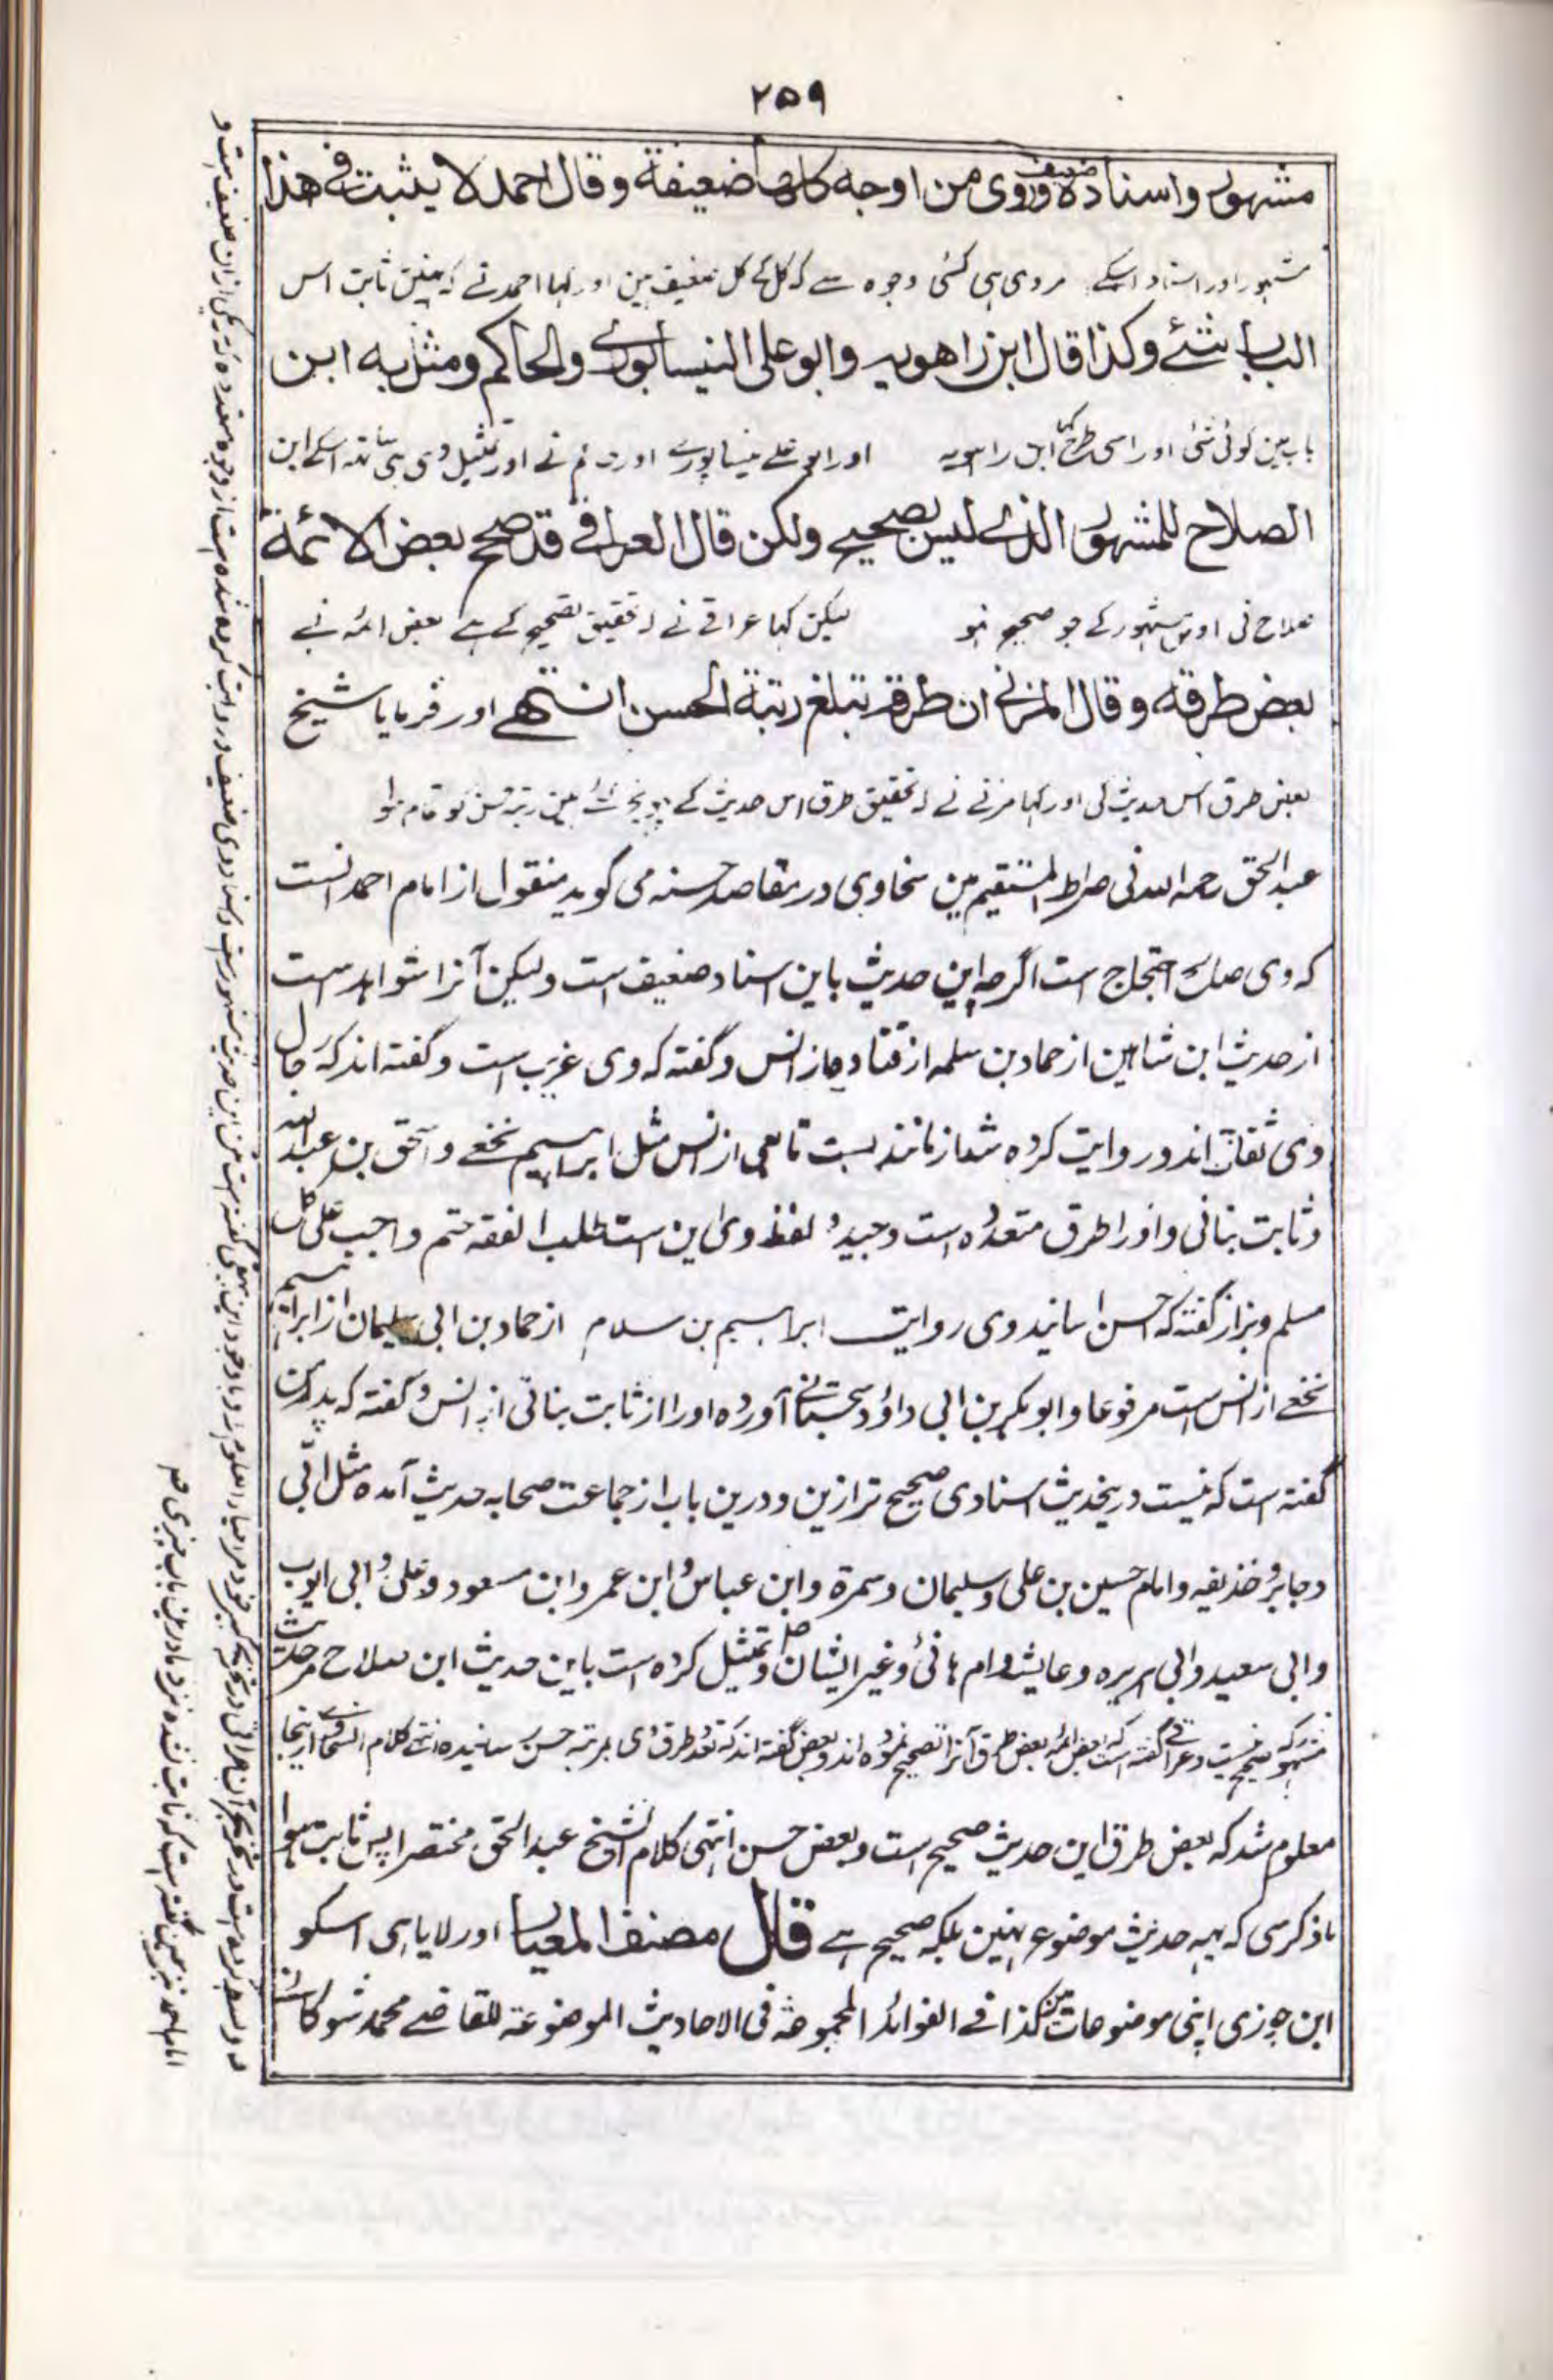 ۲۵۹
مشہور واسنادہ ضعیف وروی من اوجہ کلہا ضعیفة وقال احمد لا یثبت فی هذا
مشہور اور اسناد اسکے مروی ہی کئی وجوہ سے کہ کل کے کل ضعیف ہین اور کہا احمد نے کہ نہین ثابت اس
الباب شئے وکذا قال ابن راهویہ وابو علی النیسابوری والحاکم ومثل بہ ابن
باب مین کوئی شئی اور اسی طرح کہا ابن راہویہ اور ابو علے نیساپورے اور حاکم نے اور تمثیل دی ہی ساتھ اسکے ابن
الصلاح للمشہور الذی لیس بصحیح ولکن قال العراقی قد صحح بعض الائمة
صلاح نی اوس مشہور کے جو صحیح نہو لیکن کہا عراقے نے کہ تحقیق تصحیح کے ہے بعض ائمہ نے
بعض طرقہ وقال المزنی ان طرقہ تبلغ رتبة الحسن انتہے اور فرمایا شیخ
بعض طرق اس حدیث کی اور کہا مزنے نے کہ تحقیق طرق اس حدیث کے پہونچتے ہین رتبہ حسن کو تمام ہوا
عبد الحق رحمہ اللہ نی صراط المستقیم مین سخاوی در مقاصد حسنہ می گوید منقول از امام احمد انست
کہ وی صالح احتجاج است اگرچہ این حدیث باین اسناد ضعیف است ولیکن آنرا شواہد است
از حدیث ابن شاہین از حماد بن سلمہ از قتادہ از انس وگفتہ کہ وی غریب است وگفتہ اند کہ رجال
وی ثقات اند و روایت کردہ شد مانند بست تابعی از انس مثل ابراہیم نخعے و اسحق بن عبد اللہ
وثابت بنانی و اورا طرق متعددہ است وجیدہ لفظ وی این است طلب الفقہ حتم واجب علی کل
مسلم وبزار گفتہ کہ احسن اسانید وی روایت ابراہیم بن سلام از حماد بن ابی سلیمان از ابراہیم
نخعے از انس است مرفوعا وابو بکر بن ابی داؤد سجستانی آوردہ اورا از ثابت بنانی از انس وگفتہ کہ پدر من
گفتہ است کہ نیست درینحدیث اسنادی صحیح تر ازین ودرین باب از جماعت صحابہ حدیث آمدہ مثل ابی
وجابر وحذیفہ وامام حسین بن علی وسلیمان وسمرہ وابن عباس وابن عمر وابن مسعود وعلی وابی ایوب
وابی سعید وابی ہریرہ وعایشہ وام ہانئ وغیر ایشان وتمثیل کردہ است باین حدیث ابن صلاح مر حدیث
مشہور کہ صحیح نیست وعراقے گفتہ است کہ بعض ائمہ بعض طرق آنرا تصحیح نمودہ اند وبعض گفتہ اند کہ تعدد طرق وی بمرتبہ حسن رسانیدہ انتہے کلام السخاوے از ینجا
معلوم شد کہ بعض طرق این حدیث صحیح است وبعض حسن انتہی کلام الشیخ عبد الحق مختصرا پس ثابت ہوا
ماذکر سی کہ یہہ حدیث موضوع نہین بلکہ صحیح ہے قال مصنف المعیار اور لایا ہی اسکو
ابن جوزی اپنی موضوعات مین کذا فے الفوائد المجموعة فی الاحادیث الموضوعة للقاضے محمد شوکانے